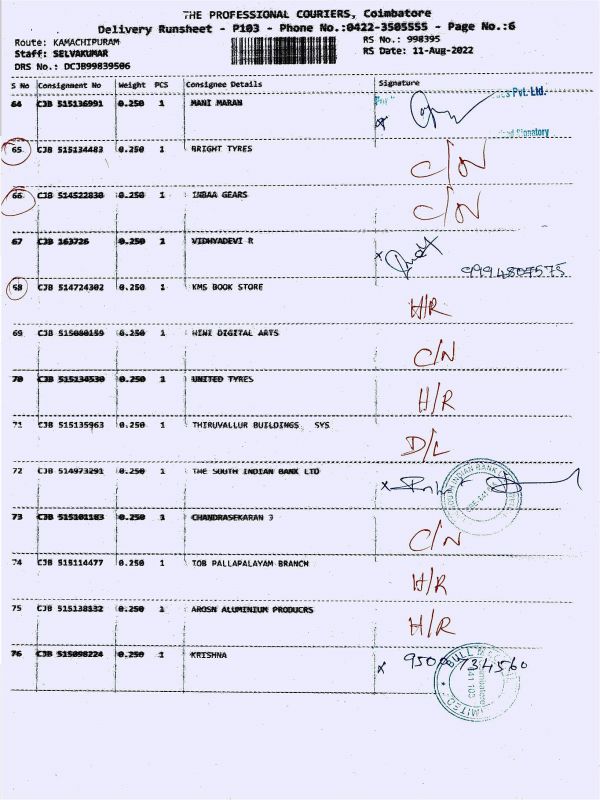 THE PROFESSIONAL COURIERS, Coimbatore
Delivery Runsheet - P103 - Phone No.:0422-3505555 - Page No.:6
Route: KAMACHIPURAM
RS No.: 998395
Staff: SELVAKUMAR
RS Date: 11-Aug-2022
DRS No.: DCJB99839506
S No Consignment No Weight PCS Consignee Details Signature
64 CJB 515136991 0.250 1 MANI MARAN
Pvt. Ltd.
Signatory
65 CJB 515134483 0.250 1 BRIGHT TYRES C/N
66 CJB 514522830 0.250 1 INBAA GEARS C/N
67 CJB 163726 0.250 1 VIDHYADEVI R
9994807575
68 CJB 514724302 0.250 1 KMS BOOK STORE H/R
69 CJB 515080159 0.250 1 NINI DIGITAL ARTS C/N
70 CJB 515134530 0.250 1 UNITED TYRES H/R
71 CJB 515135963 0.250 1 THIRUVALLUR BUILDINGS SYS D/L
72 CJB 514973291 0.250 1 THE SOUTH INDIAN BANK LTD
INDIAN BANK
73 CJB 515101163 0.250 1 CHANDRASEKARAN J C/N
74 CJB 515114477 0.250 1 TOB PALLAPALAYAM BRANCH H/R
75 CJB 515138132 0.250 1 AROSN ALUMINIUM PRODUCRS H/R
76 CJB 515098224 0.250 1 KRISHNA
9500 734560
BULL
641 103
LIMITED